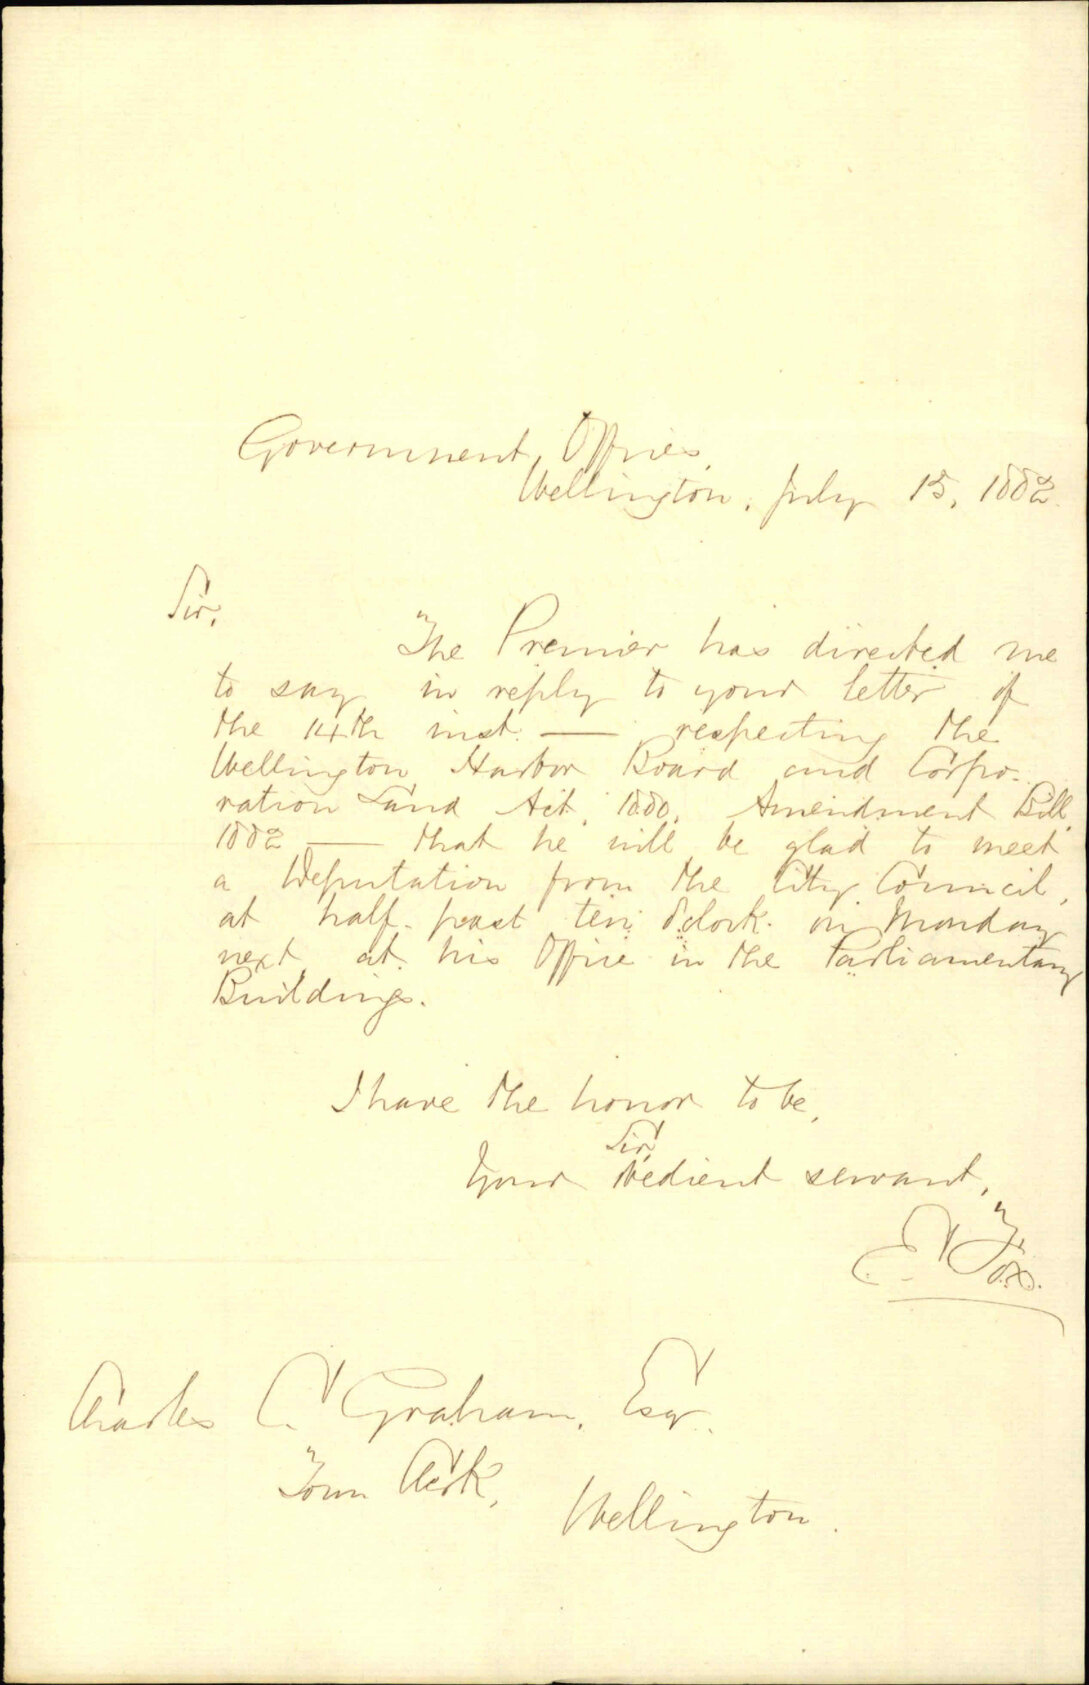 Government Offices,
Wellington, July 15, 1882.
Sir,
The Premier has directed me
to say in reply to your letter of
the 14th inst. — respecting the
Wellington Harbor Board and Corpo-
ration Land Act, 1880, Amendment Bill,
1882 — that he will be glad to meet
a Deputation from the City Council,
at half-past ten o'clock on Monday
next at his Office in the Parliamentary
Buildings.
I have the honor to be,
Sir,
Your obedient servant,
E Fox.
Charles C. Graham, Esq.
Town Clerk,
Wellington.